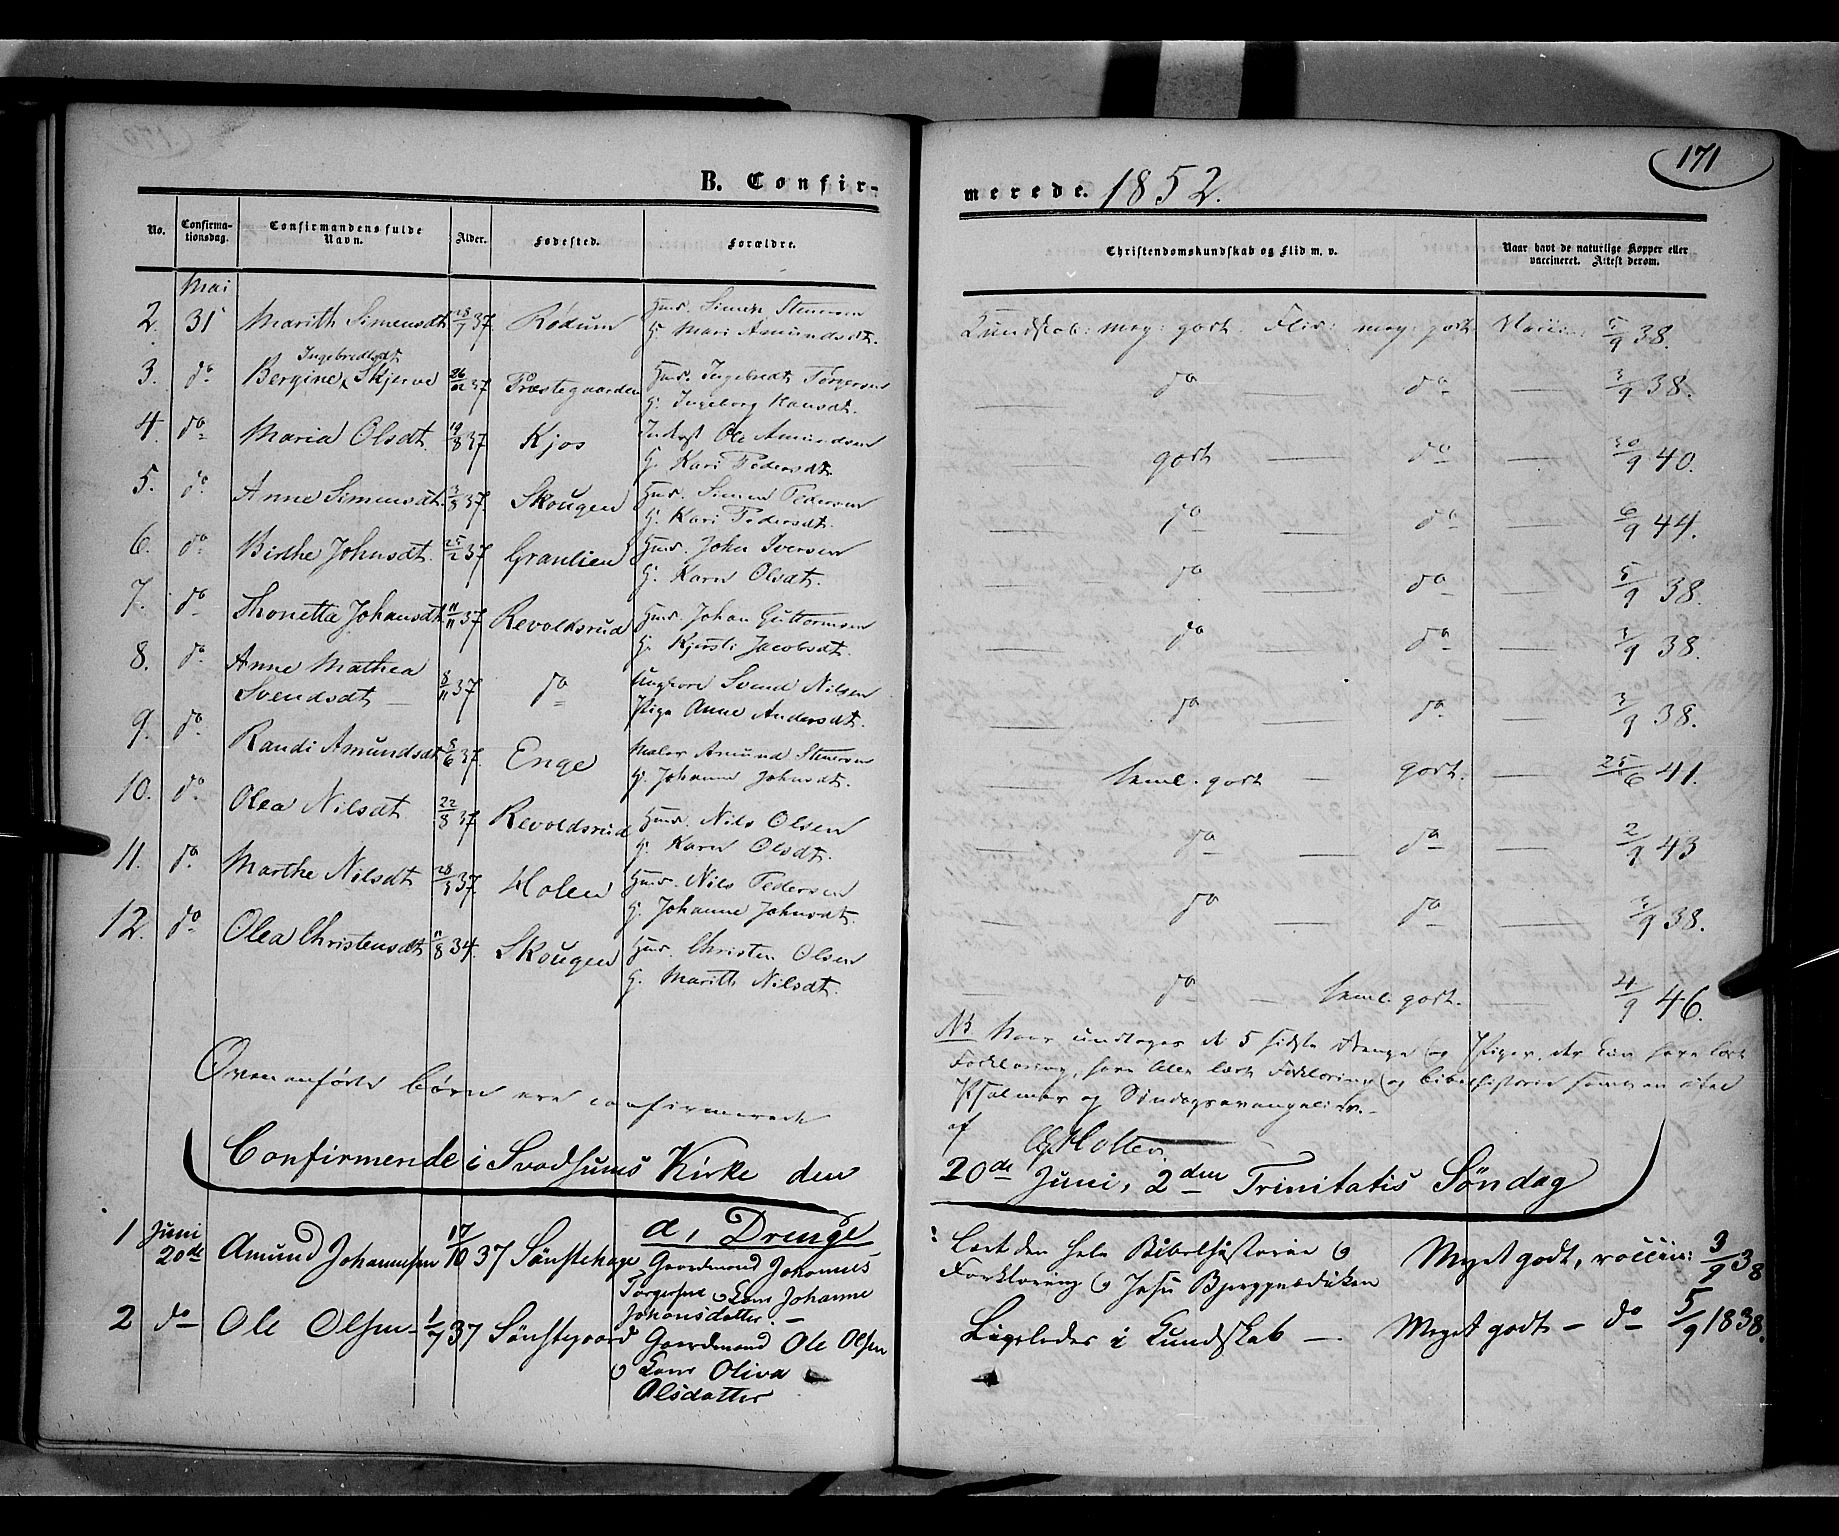 171
B. Confir-
merede. 1852.
No. Confirma-tionsdag. Confirmandens fulde Navn. Alder. Fødested. Forældre.
Christendomskundskab og Flid m. v. Naar havt de naturlige Kopper eller vaccineret. Attest derom.
Mai
2. 31 Marith Simensdt 37 Rødum Huusm. Simen Stenersen
H. Mari Amundsdt.
Kundskab: meg: godt. Flid: meg: godt. Vaccin: 5/9 38.
Ingebredtsdt
3. do Bergine Skjerve 37 Præstegaarden Huusm. Ingebredt Torgersen
H. Ingeborg Hansdt.
do do 3/9 38.
4. do Maria Olsdt. 19/8 37 Kjos Inderst Ole Amundsen
H. Kari Pedersdt.
godt do 30/9 40.
5. do Anne Simensdt. 37 Skougen Huusm. Simen Pedersen
H. Kari Pedersdt.
do do 6/9 44.
6. do Birthe Johnsdt. 25/2 37 Granlien Huusm. John Iversen
H. Karen Olsdt.
do do 5/9 38.
7. do Thonetta Johansdt 11/11 37 Revoldsrud Huusm. Johan Guttormsen
H. Kjersti Jacobsdt.
do do 3/9 38.
8. do Anne Mathea
Svendsdt 37 do Ungkarl Svend Nilsen
Pige Anne Andersdt.
do do 3/9 38.
9. do Randi Amundsdt 37 Enge Maler Amund Stenersen
H. Johanne Johnsdt.
teml. godt godt. 25/6 41.
10. do Olea Nilsdt 22/8 37 Revoldsrud Huusm. Nils Olsen
H. Karen Olsdt.
do do 2/9 43
11. do Marthe Nilsdt 37 Holen Huusm. Nils Pedersen
H. Johanne Johnsdt.
do do 3/9 38.
12. do Olea Christensdt 11/8 34. Skougen Huusm. Christen Olsen
H. Marith Nilsdt.
do teml. godt. 4/9 46.
NB Naar undtages de 5 sidste Drenge og Piger, der kun have læst
Forklaring, have Alle læst Forklaring og Bibelhistorie samt en
Psalmer og Søndagsevangelier.
Ovenanførte Børn ere confirmerede
af Holter.
Confirmerede i Svadsums Kirke den
20de Juni, 2den Trinitatis Søndag
a, Drenge
1 Juni 20de Amund Johannesen 17/10 37 Sønstehage Gaardmand Johannes
Torgersen og Kone Johanne
Johansdatter.
Læst den hele Bibelhistorie og
Forklaring og Jesu Bjergprædiken Meget godt, vaccin: 3/9 38
2 do Ole Olsen 1/7 37 Sønstegaard Gaardmand Ole Olsen
og Kone Oliva
Olsdatter
Ligeledes i Kundskab Meget godt do 5/9 1838.